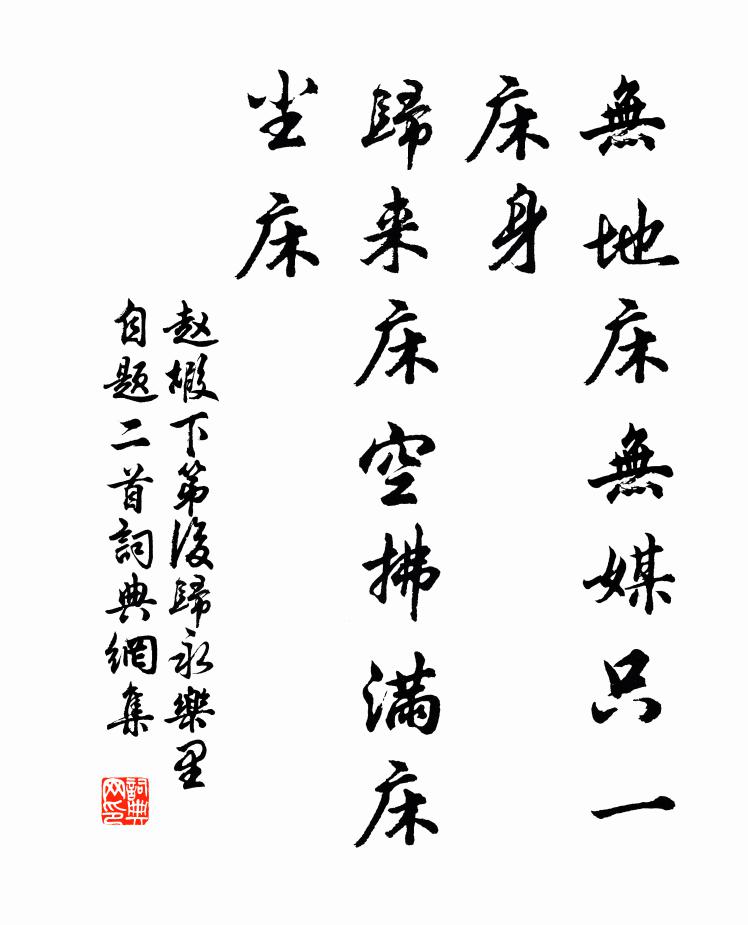 無地床無媒只一
床身
歸来床空拂滿床
尘床
赵嘏下第後歸永樂里
自题二首詞典網集
詞典网印